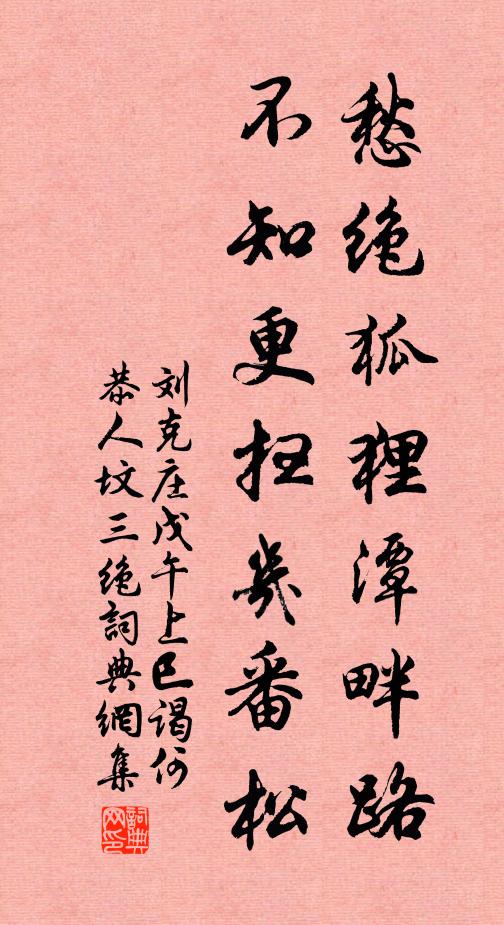 愁绝狐狸潭畔路
不知更扫几番松
刘克庄戊午上巳谒何
恭人坟三绝詞典網集
詞典
网印